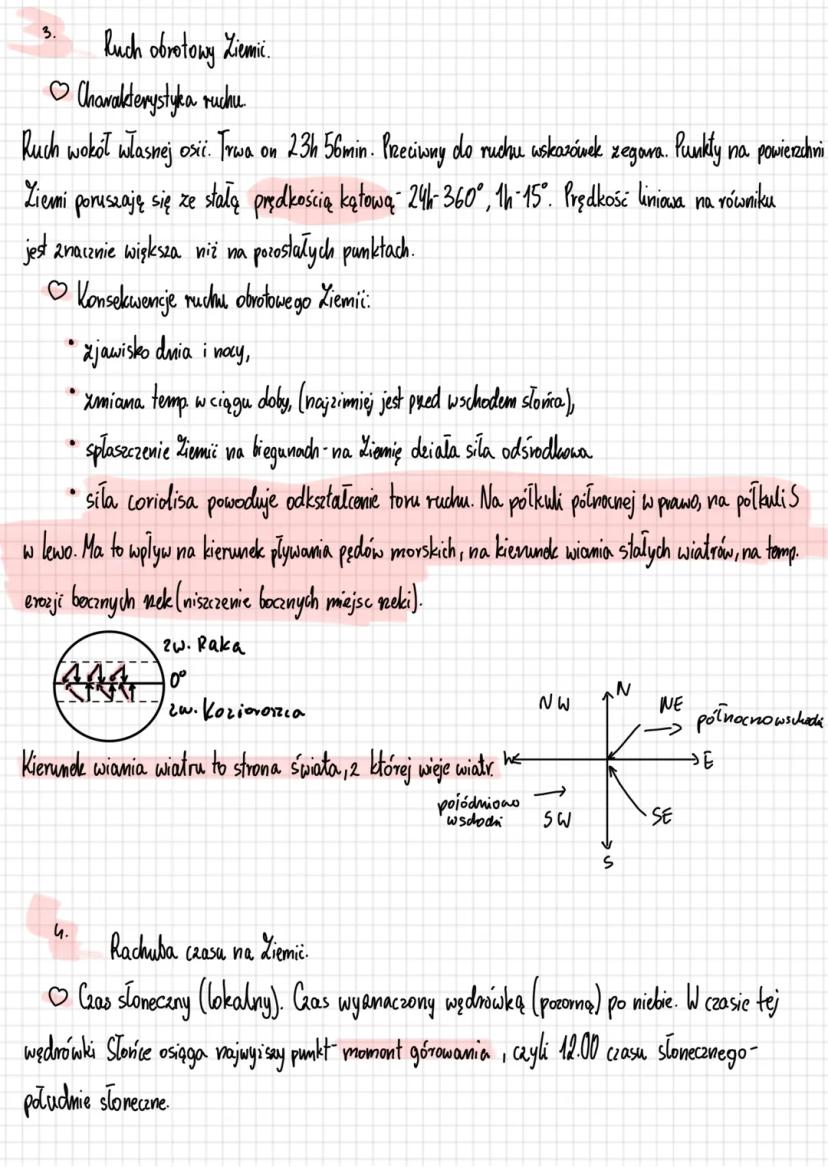 3.
Ruch obrotowy Ziemi.
♡ Charakterystyka ruchu.
Ruch wokół własnej osi. Trwa on 23h 56min. Przeciwny do ruchu wskazówek zegara. Punkty na powierzchni
Ziemi poruszają się ze stałą prędkością kątową - 24h-360°, 1h-15°. Prędkość liniowa na równiku
jest znacznie większa niż na pozostałych punktach.
♡ Konsekwencje ruchu obrotowego Ziemi:
• zjawisko dnia i nocy,
• zmiana temp. w ciągu doby, (najzimniej jest przed wschodem słońca),
• spłaszczenie Ziemi na biegunach - na Ziemię działa siła odśrodkowa
• siła coriolisa powoduje odkształcenie toru ruchu. Na półkuli północnej w prawo, na półkuli S
w lewo. Ma to wpływ na kierunek pływania pędów morskich, na kierunek wiania stałych wiatrów, na temp.
erozji bocznych rzek (niszczenie bocznych miejsc rzeki).
zw. Raka
0°
zw. Koziorożca
NW N NE północnowschodni
Kierunek wiania wiatru to strona świata, z której wieje wiatr. W E
południowo
wschodni SW SE
S
4.
Rachuba czasu na Ziemi.
♡ Czas słoneczny (lokalny). Czas wyznaczony wędrówką (pozorną) po niebie. W czasie tej
wędrówki Słońce osiąga najwyższy punkt - momont górowania, czyli 12.00 czasu słonecznego -
południe słoneczne.